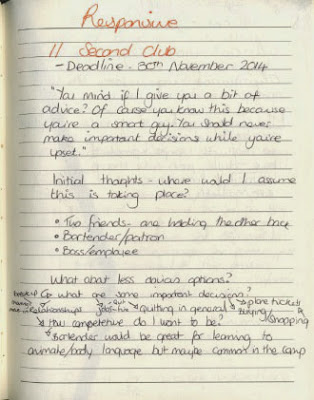 Responsive
// Second Club
- Deadline - 30th November 2014
"You mind if I give you a bit of
advice? Of cause you know this because
you're a smart guy. You should never
make important decisions while you're
upset."
Initial thoughts - where would I assume
this is taking place?
• Two friends - one holding the other back
• Bartender/patron
• Boss/employee
What about less obvious options?
what are some important decisions?
Relationships quitting in general plane tickets
buying/
shopping
How competitive do I want to be?
Bartender would be great for learning to
animate/body language but maybe common in the comp